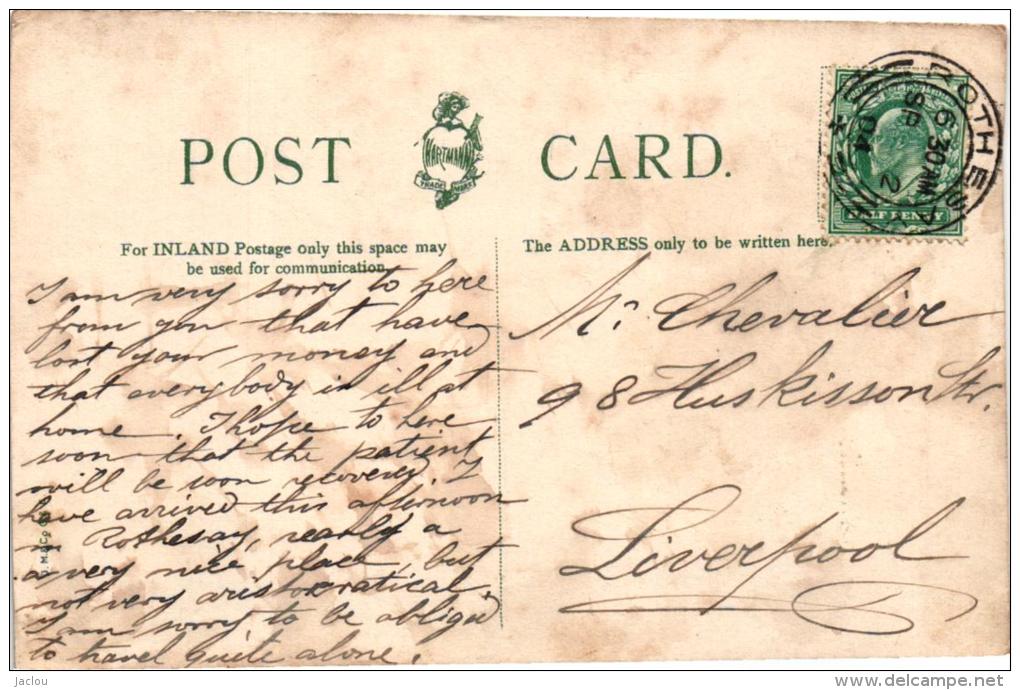 POST CARD.
HARTMANN
TRADE MARK
ROTHESAY
6 30AM
SP 2
04
HALF PENNY
For INLAND Postage only this space may
be used for communication.
The ADDRESS only to be written here.
I am very sorry to here
from you that have
lost your money and
that everybody is ill at
home. I hope to here
soon that the patient
will be soon recovered. I
have arrived this afternoon
Rothesay, really a
a very nice place, but
not very aristocratical.
I am sorry to be obliged
to travel quite alone.
Mr. Chevalier
98 Huskisson Str.
Liverpool
jaclou
delcampe.net